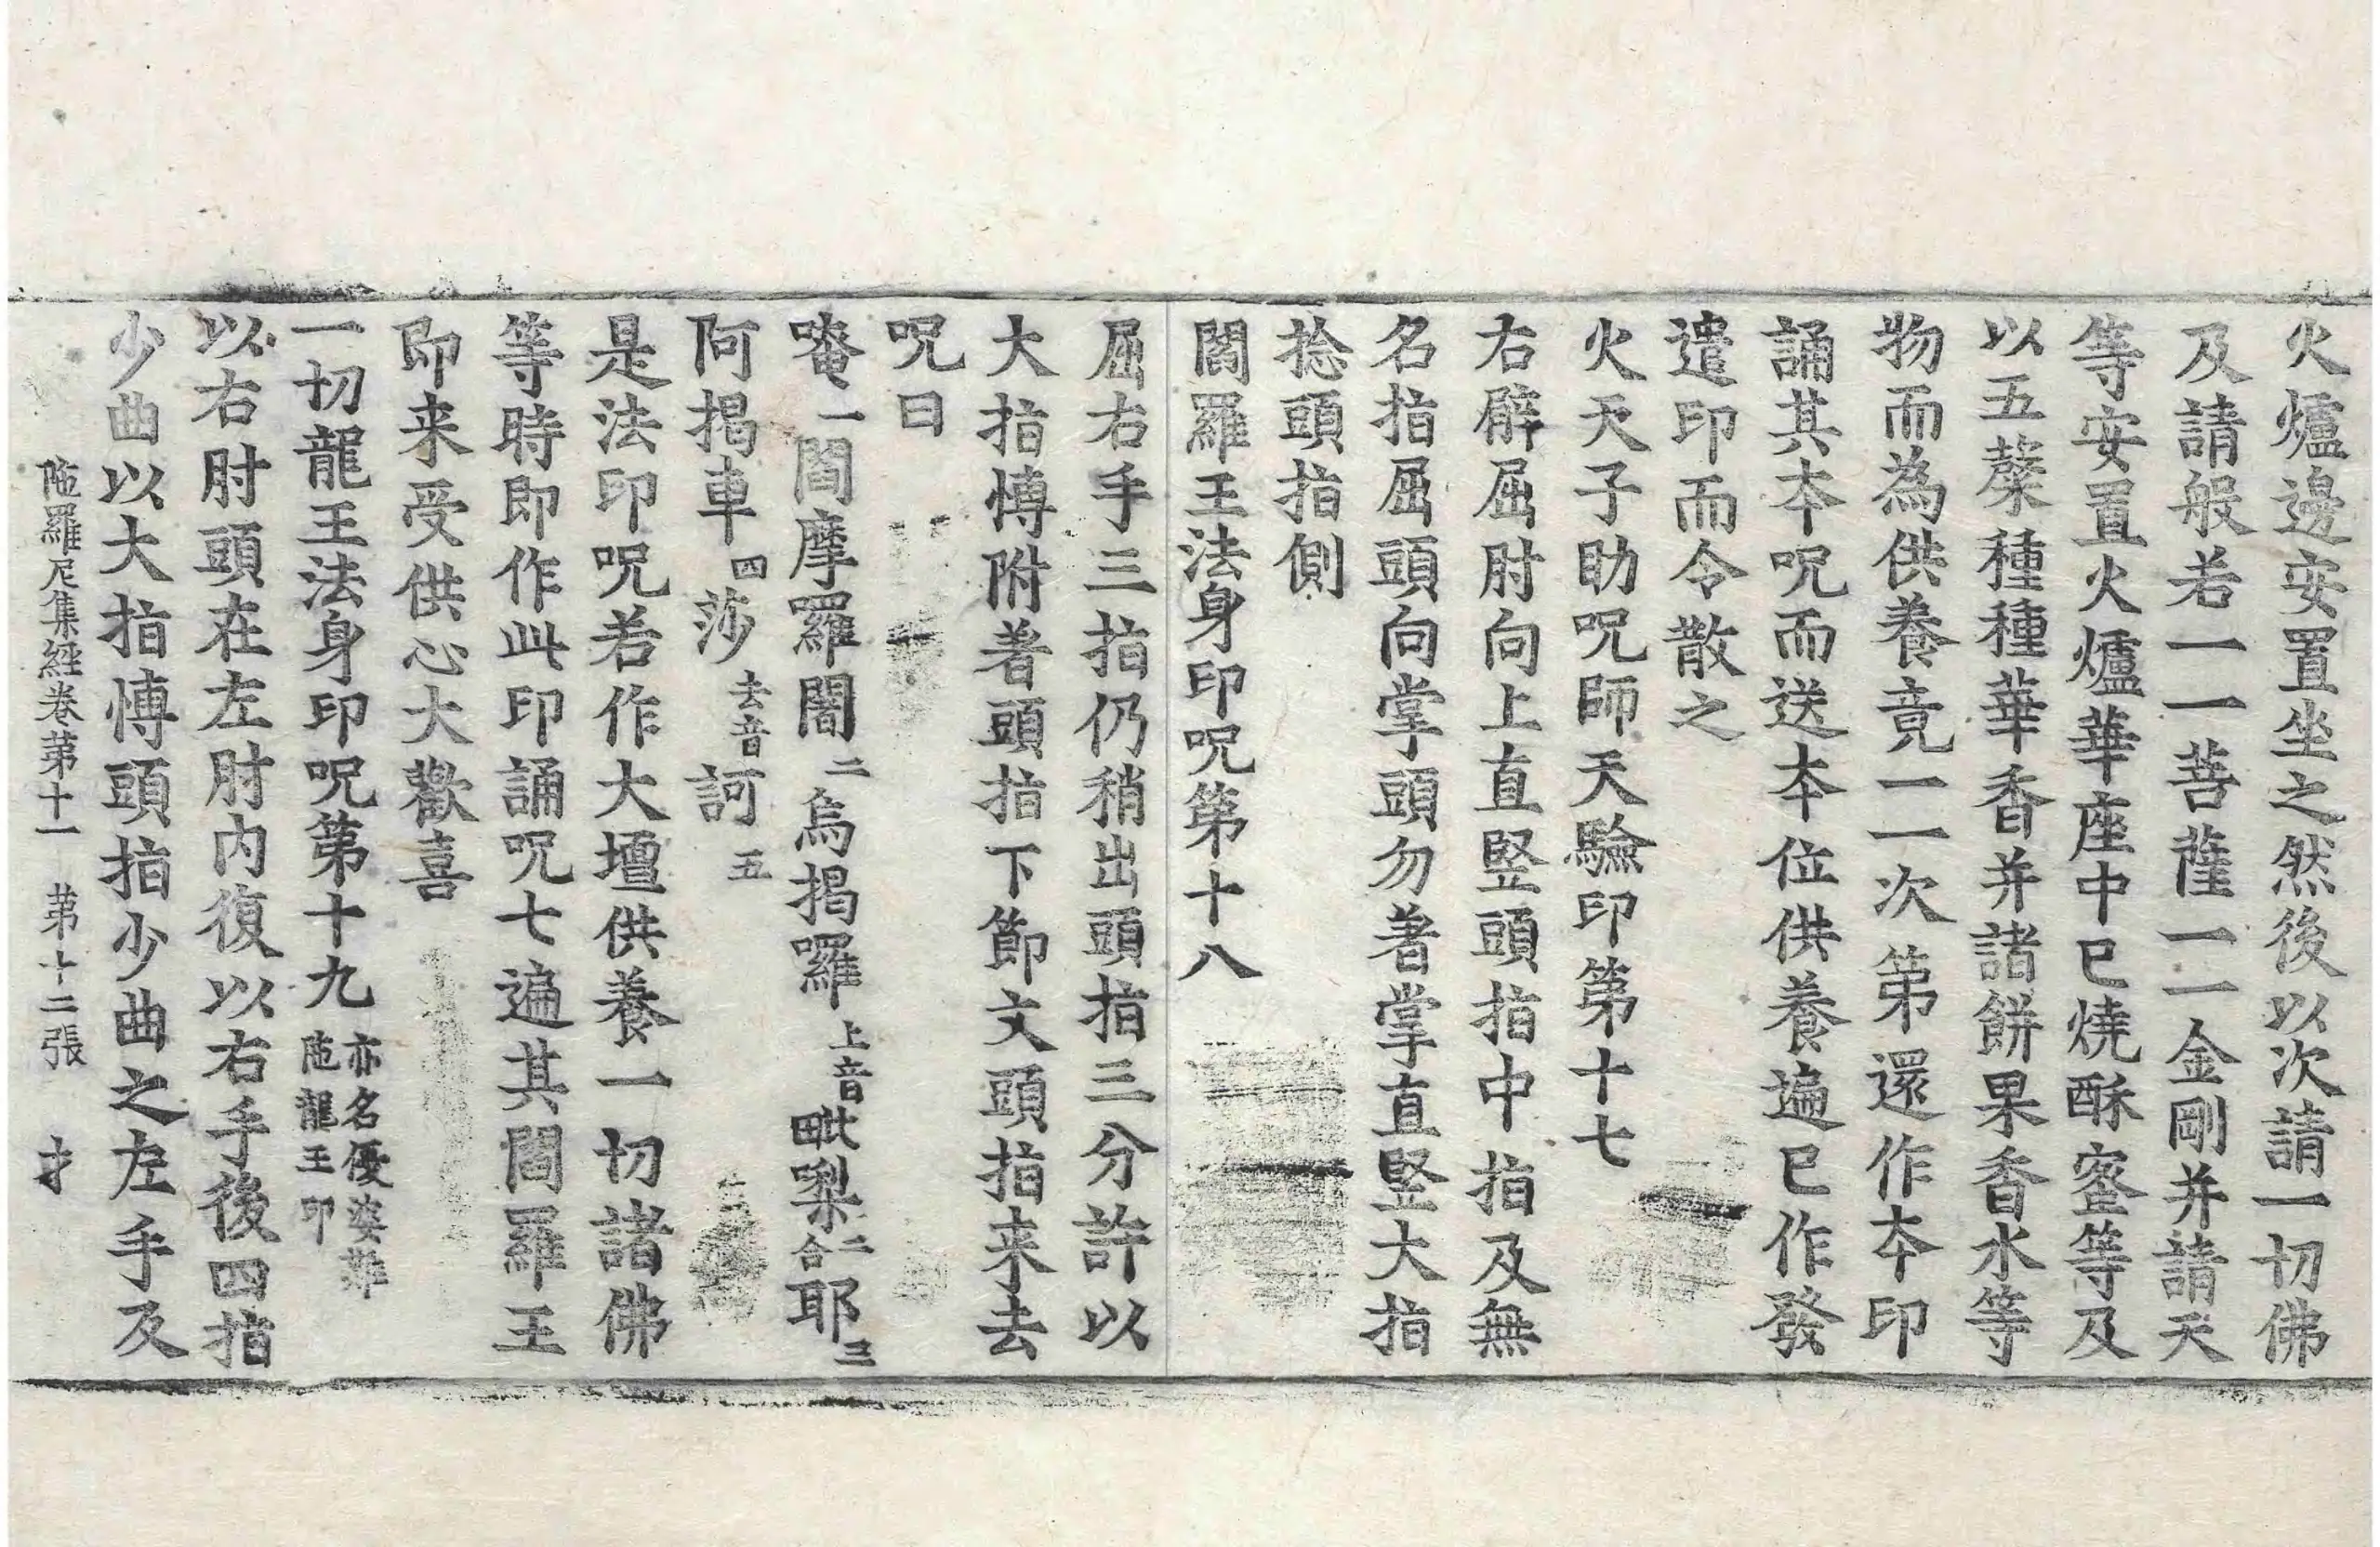 火爐邊安置坐之然後以次請一切佛
及請般若一一菩薩一一金剛并請天
等安置火爐華座中已燒酥蜜等及
以五糵種種華香并諸餅果香水等
物而為供養竟一一次第還作本印
誦其本呪而送本位供養遍已作發
遣印而令散之
火天子助呪師天驗印第十七
右臂屈肘向上直竪頭指中指及無
名指屈頭向掌頭勿著掌直竪大指
捻頭指側
閻羅王法身印呪第十八
屈右手三指仍稍出頭指三分許以
大指愽附著頭指下節文頭指来去
呪曰
唵一閻摩羅闍二烏揭囉上音毗梨二合耶三
阿揭車四莎去音訶五
是法印呪若作大壇供養一切諸佛
等時即作此印誦呪七遍其閻羅王
即来受供心大歡喜
一切龍王法身印呪第十九亦名優婆難陁龍王印
以右肘頭在左肘内復以右手後四指
少曲以大指愽頭指少曲之左手及
陁羅尼集經卷第十一　第十二張　才